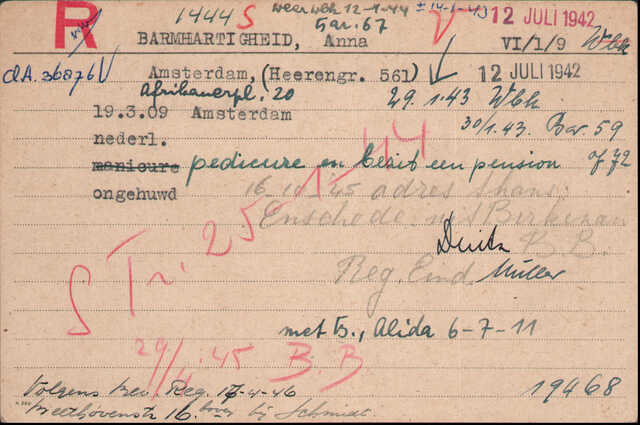 R 1444 S weer Wbk 12-1-44 ± 14-1-43 12 JULI 1942
bar. 67
BARMHARTIGHEID, Anna VI/1/9 Wbk
CA. 36876 V Amsterdam, (Heerengr. 561) 12 JULI 1942
Afrikanerpl. 20 29.1.43 Wbk
19.3.09 Amsterdam 30/1.43. Bar. 59
nederl.
manicure pedicure en bezit een pension of 72
ongehuwd 16-10-'45 adres thans:
Enschede
B.B.
Reg. Eind. Müller
S Tr. 25-1-44
met Ts., Alida 6-7-11
29/4.45 B.B
Volgens bev. Reg. 17-4-46 19468
Beethovenstr 16 boven bij Schmidt